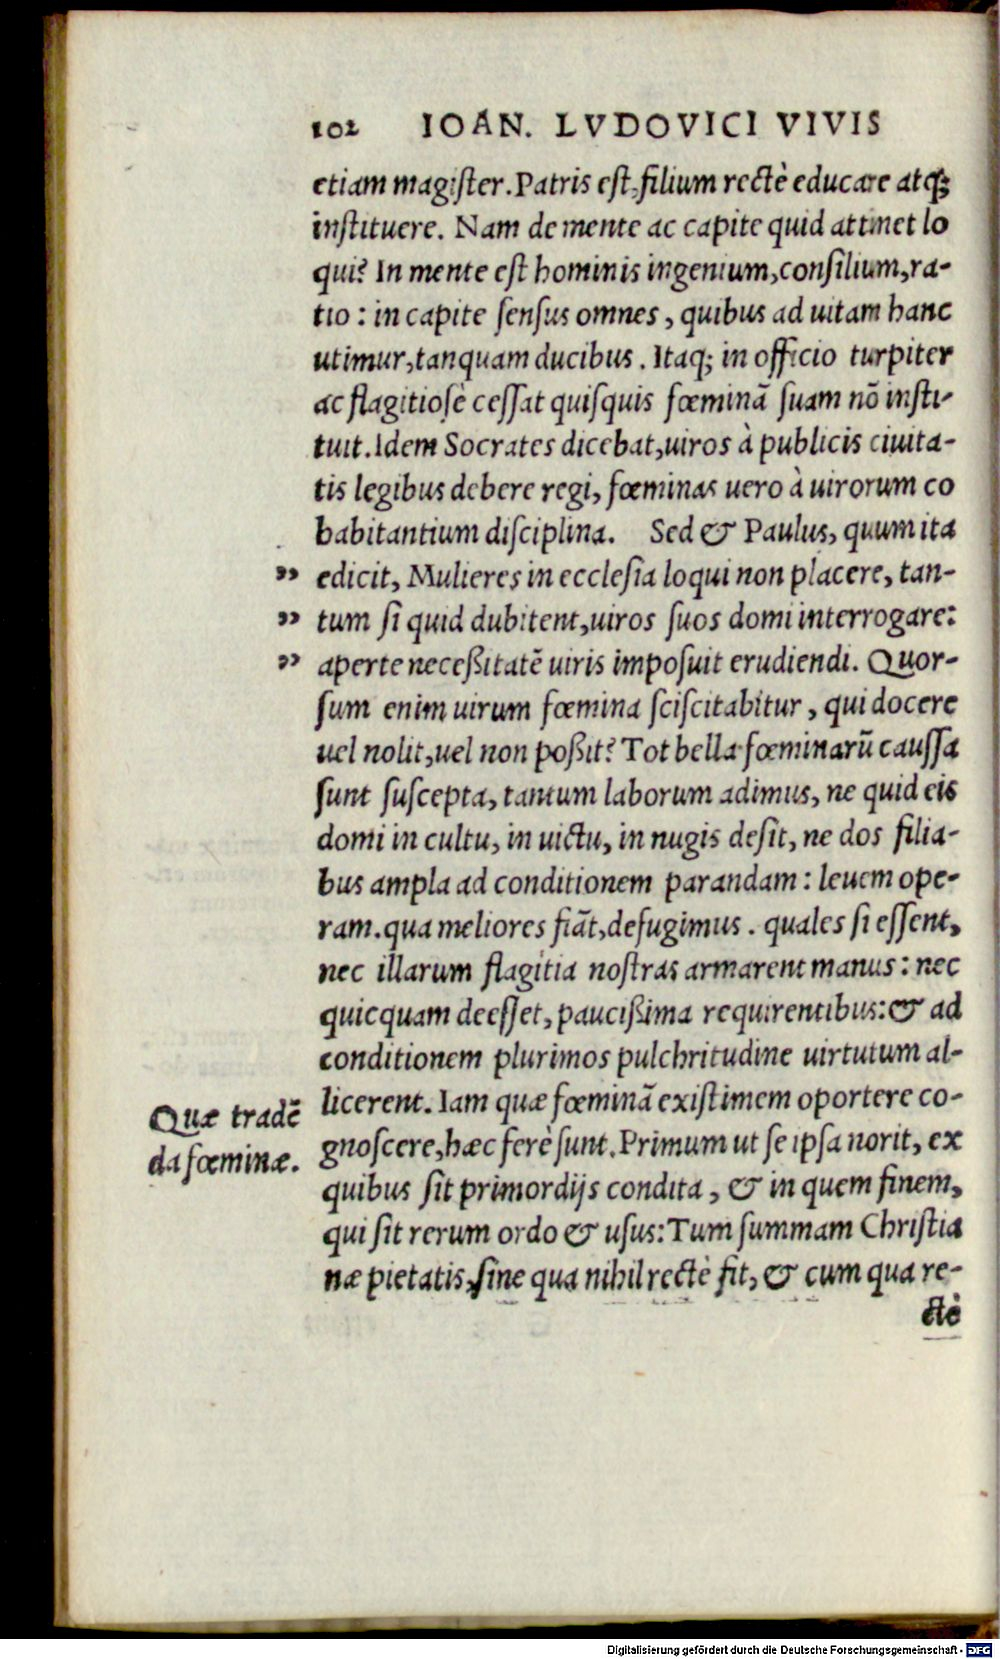 102 IOAN. LVDOVICI VIVIS
etiam magiſter. Patris eſt, filium rectè educare atq́;
inſtituere. Nam de mente ac capite quid attinet lo
qui? In mente eſt hominis ingenium, conſilium, ra-
tio : in capite ſenſus omnes, quibus ad uitam hanc
utimur, tanquam ducibus. Itaq; in officio turpiter
ac flagitioſè ceſſat quiſquis fœminā ſuam nō inſti-
tuit. Idem Socrates dicebat, uiros à publicis ciuita-
tis legibus debere regi, fœminas uero à uirorum co
habitantium diſciplina. Sed & Paulus, quum ita
„ edicit, Mulieres in eccleſia loqui non placere, tan-
„ tum ſi quid dubitent, uiros ſuos domi interrogare:
„ aperte neceßitatē uiris impoſuit erudiendi. Quor-
ſum enim uirum fœmina ſciſcitabitur, qui docere
uel nolit, uel non poßit? Tot bella fœminarū cauſſa
ſunt ſuſcepta, tantum laborum adimus, ne quid eis
domi in cultu, in uictu, in nugis deſit, ne dos filia-
bus ampla ad conditionem parandam : leuem ope-
ram. qua meliores fiāt, defugimus. quales ſi eſſent,
nec illarum flagitia noſtras armarent manus : nec
quicquam deeſſet, paucißima requirentibus: & ad
conditionem plurimos pulchritudine uirtutum al-
licerent. Iam quæ fœminā exiſtimem oportere co-
Quæ tradē
da fœminæ.
gnoſcere, hæc ferè ſunt. Primum ut ſe ipſa norit, ex
quibus ſit primordijs condita, & in quem finem,
qui ſit rerum ordo & uſus: Tum ſummam Chriſtia
næ pietatis, ſine qua nihil rectè fit, & cum qua re-
ctè
Digitalisierung gefördert durch die Deutsche Forschungsgemeinschaft - DFG